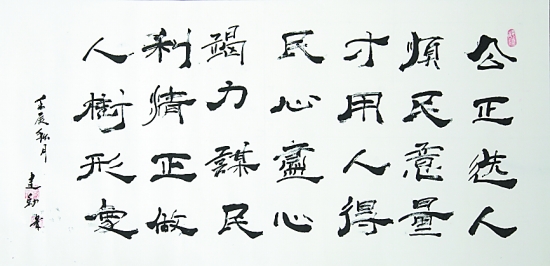 公正选人
順民意量
才用人得
民心盡心
竭力謀民
利清正做
人樹形象
壬辰秋月
建 書